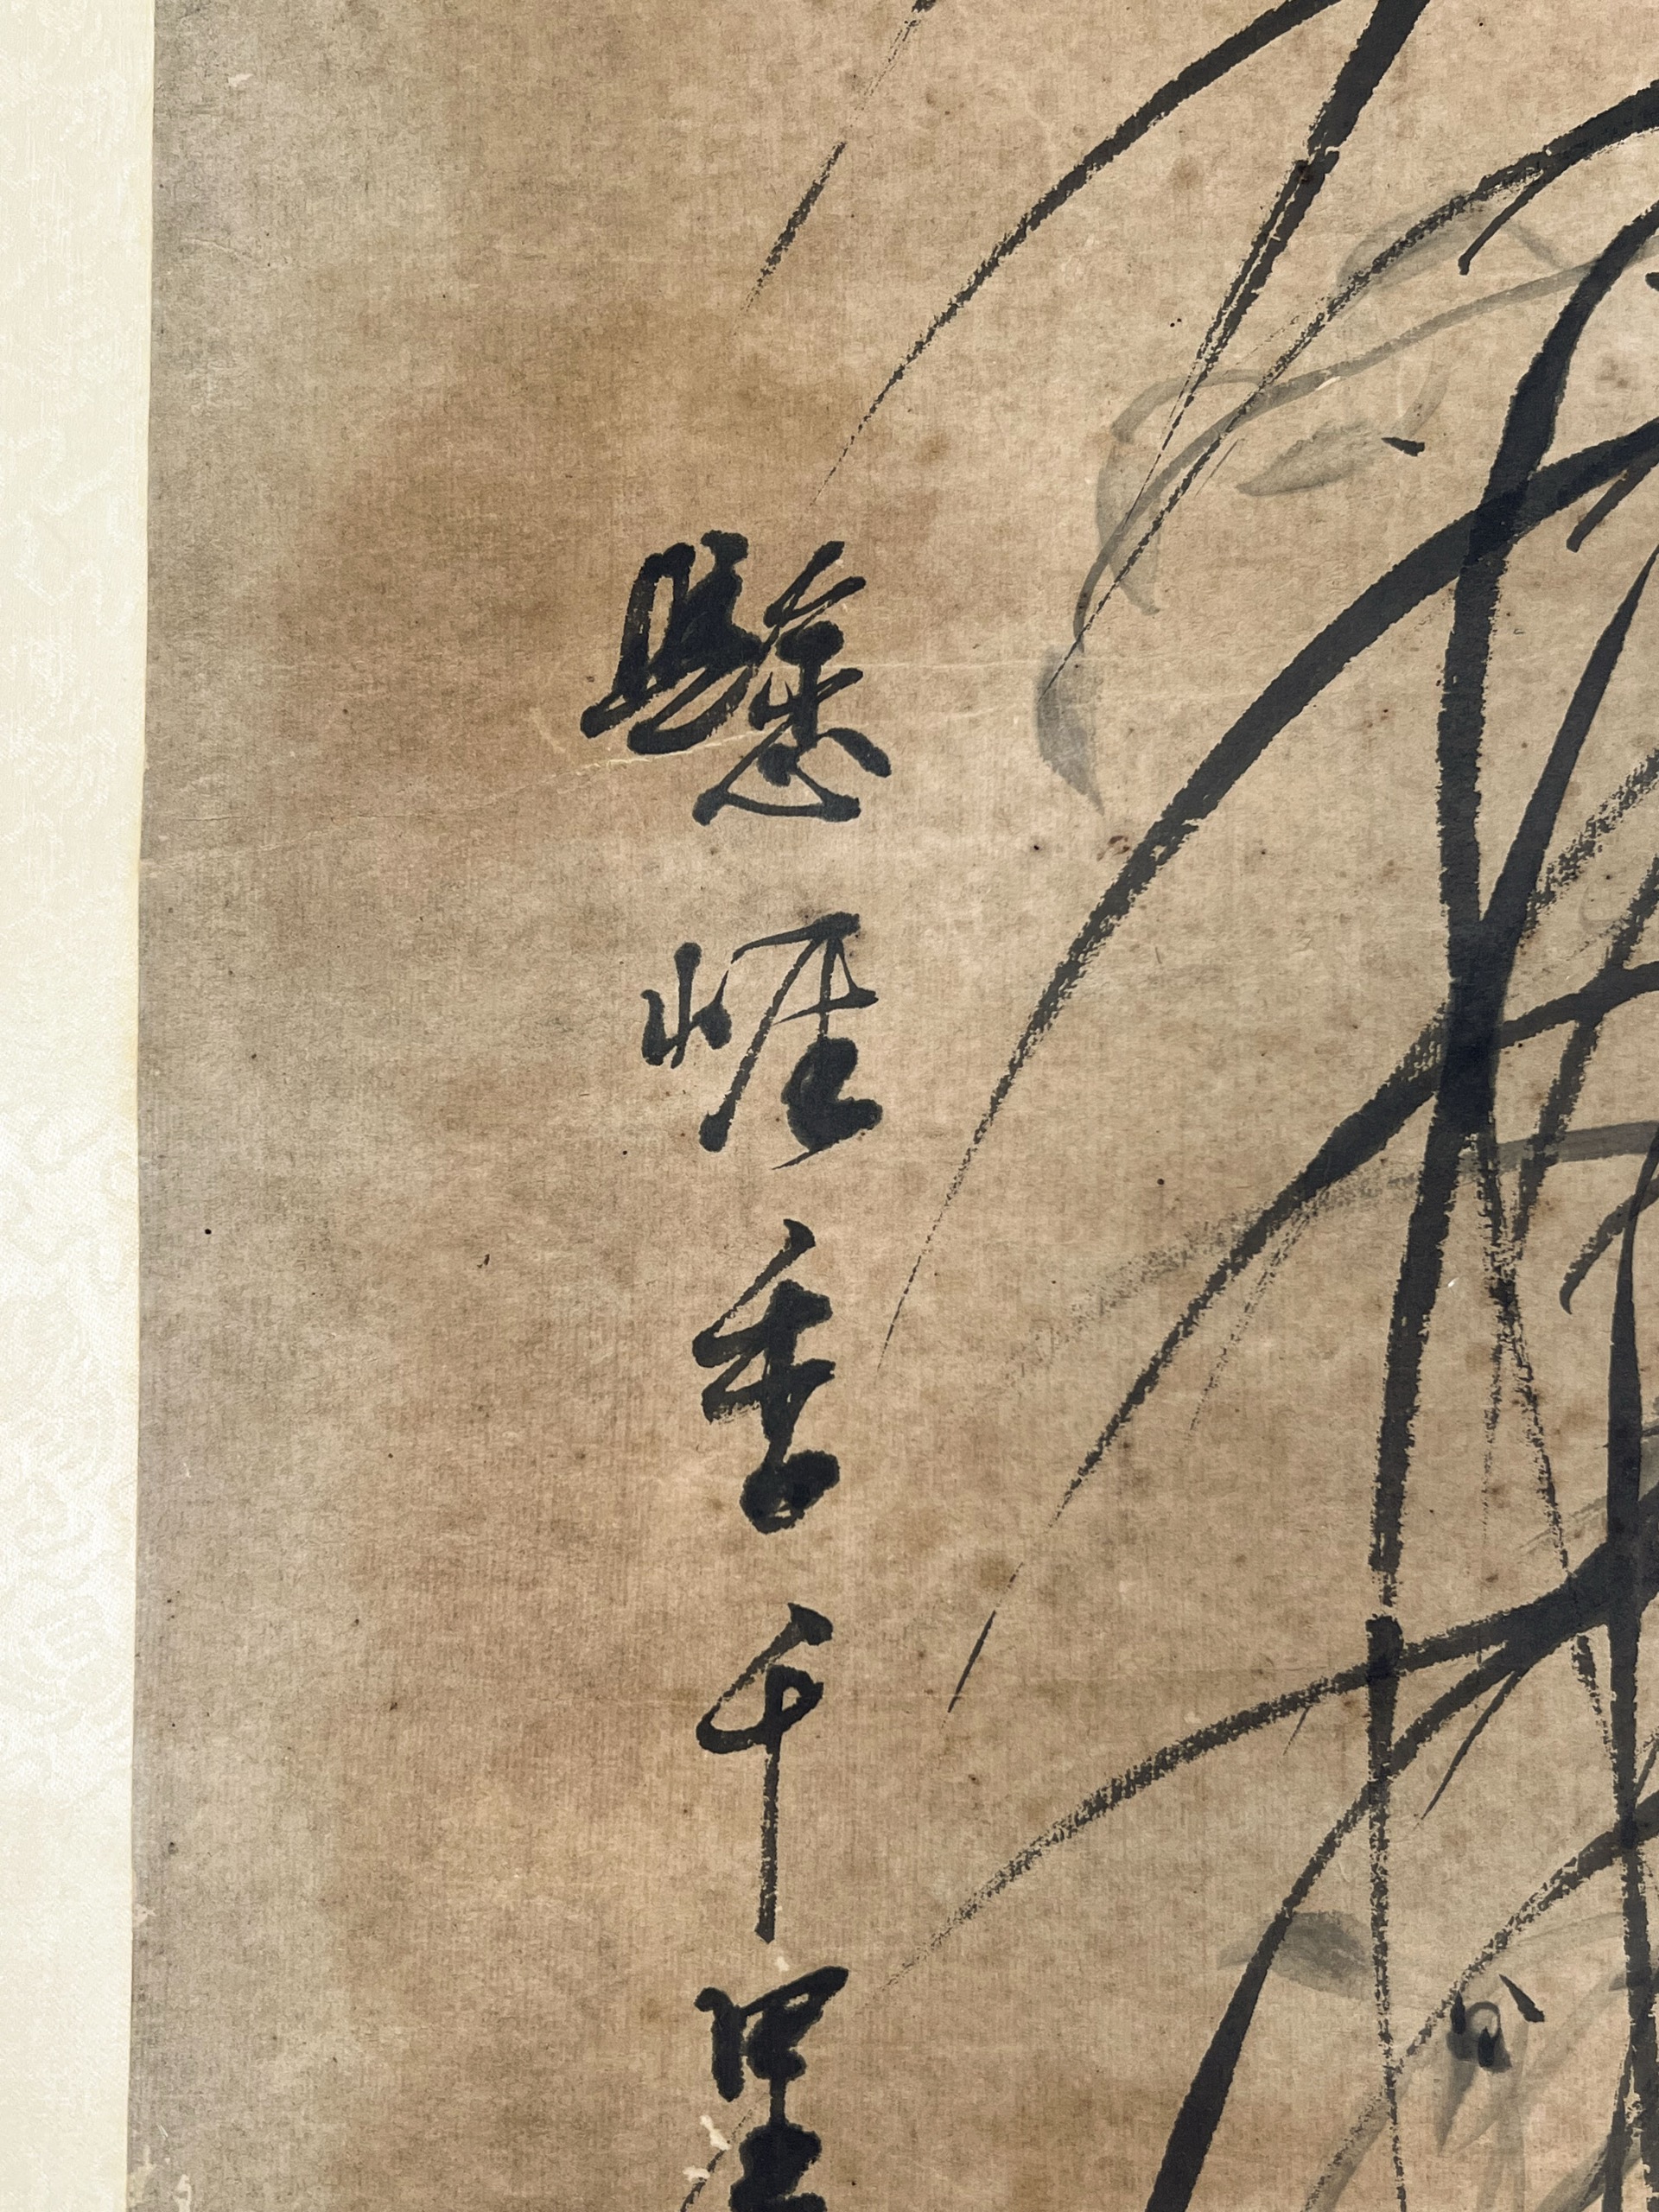 懸崖香千里